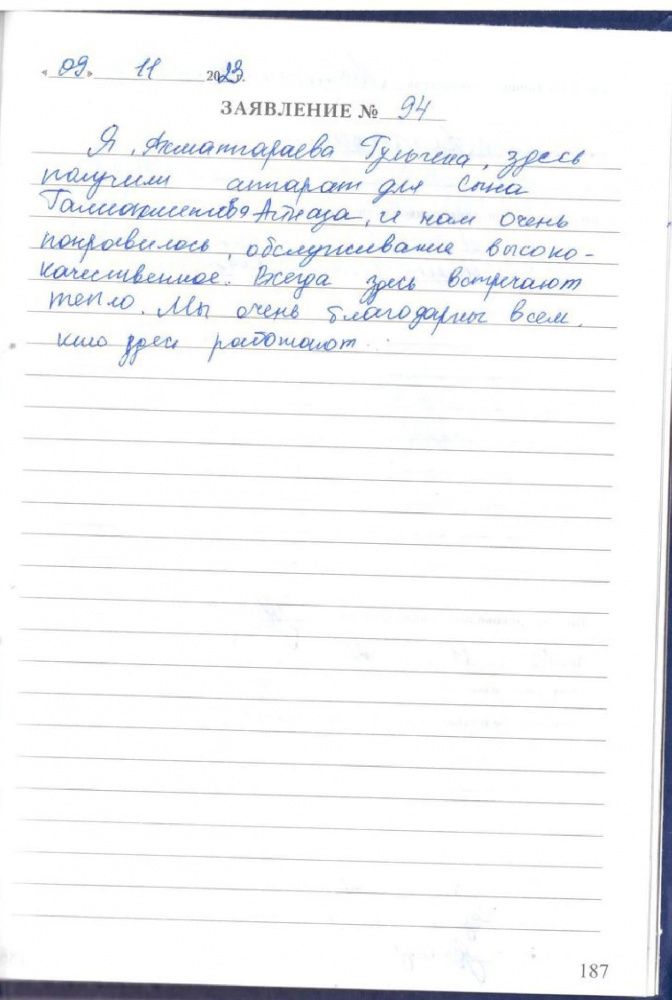 «09» 11 2023г.
ЗАЯВЛЕНИЕ № 94
Я, Ахматгараева Гульчена, здесь
получили аппарат для сына
Галиахметова Аяза, и нам очень
понравилось, обслуживание высоко-
качественное. Всегда здесь встречают
тепло. Мы очень благодарны всем,
кто здесь работают.
187